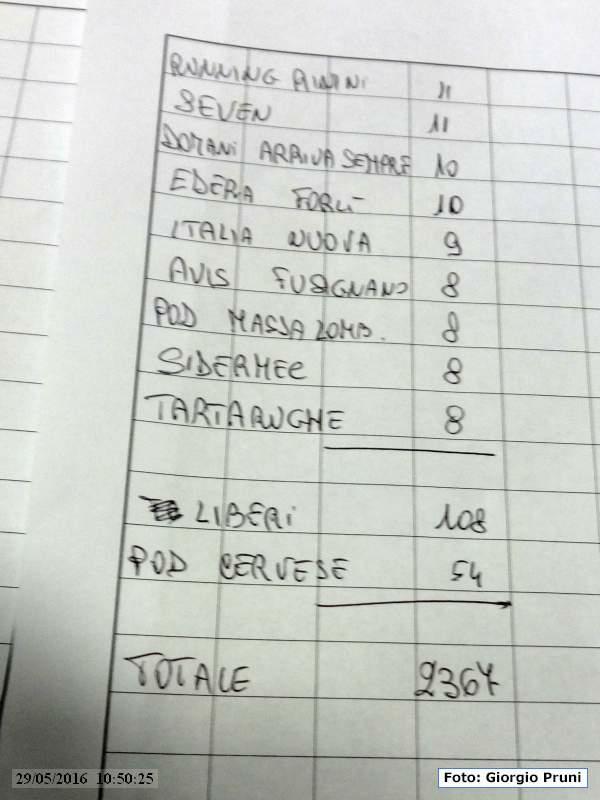 RUNNING RIMINI 11
SEVEN 11
DOMANI ARRIVA SEMPRE 10
EDERA FORLÌ 10
ITALIA NUOVA 9
AVIS FUSIGNANO 8
POD MASSA LOMB. 8
SIDERMEC 8
TARTARUGHE 8
LIBERI 108
POD CERVESE 54
TOTALE 2367
29/05/2016 10:50:25
Foto: Giorgio Pruni